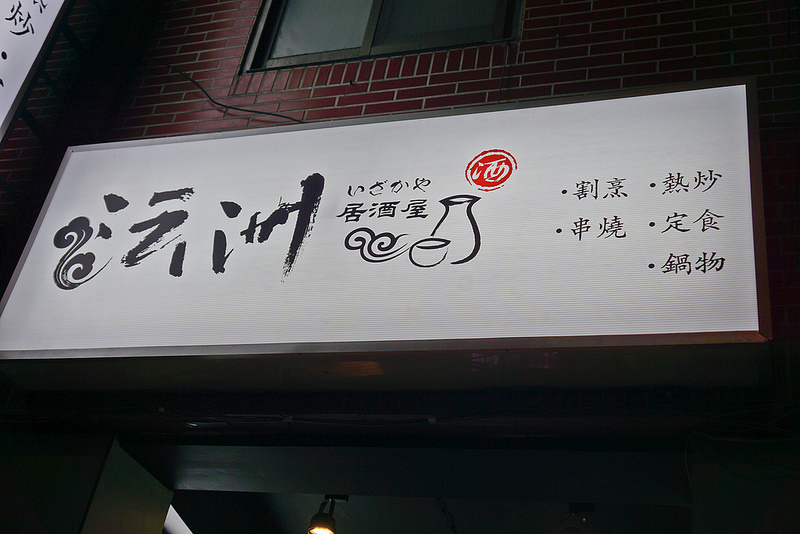 沄洲
いざかや
居酒屋
酒
·割烹 ·熱炒
·串燒 ·定食
·鍋物
炒